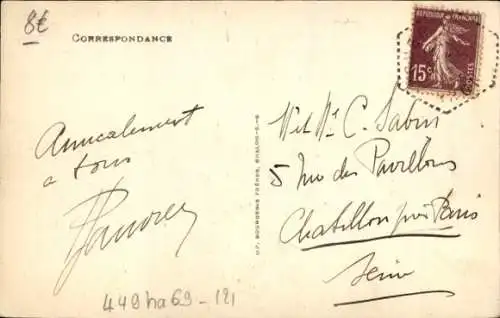 8€
CORRESPONDANCE
REPUBLIQUE FRANÇAISE
15c
POSTES
Amicalement
a tous
IMP. BOURGEOIS FRÈRES, CHALON-S-S
M et Me C. Sabin
5 rue des Pavillons
Chatillon près Paris
Seine
449 ha 69-121